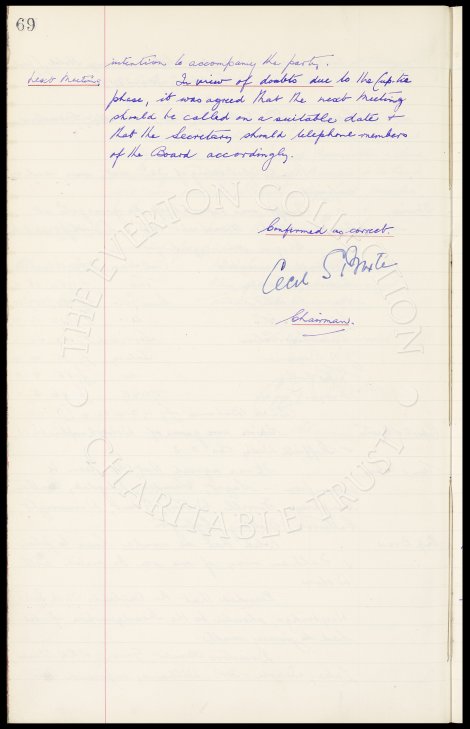 69
intention to accompany the party.
Next Meeting
In view of doubts due to the Cup-tie
phase, it was agreed that the next Meeting
should be called on a suitable date &
that the Secretary should telephone members
of the Board accordingly.
Confirmed as correct.
Cecil S
Chairman.
THE EVERTON COLLECTION
CHARITABLE TRUST